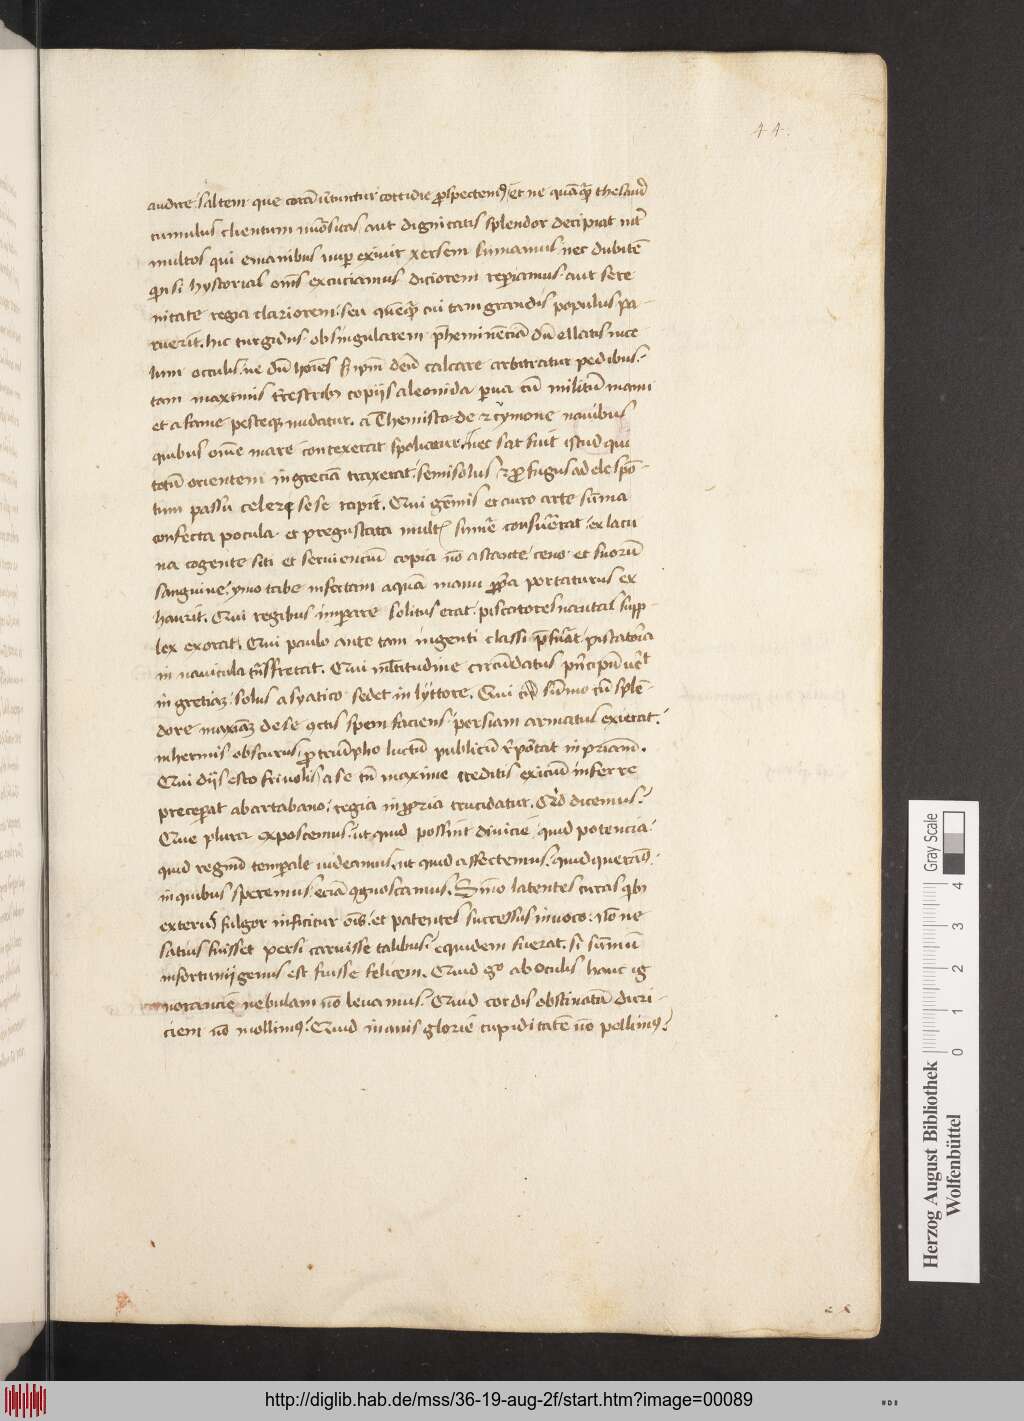 44.
audire saltem que coram untuntur cottidie prospectemus, et ne quamquam thesauri
cumulus clientum numerositas aut dignitatis splendor decipiat inter
multos qui emanibus nuper exivit xersem sumamus nec dubitem
quin si hystorias omnes excuciamus diciorem reperiamus aut sere
nitate regia clariorem: seu quemquam cui tam grandis populus pa-
ruerit. hic turgidus ob singularem preheminenciam dum ellatis nuce
lum occulis ne dum homines sed ipsum deum calcare arbitratur pedibus:
tam maximis terrestribus copiis aleonida parva cum militum manu
et a fame pesteque nudatur. a Themistode et cymone navibus
quibus omne mare contexerat spoliatur. nec sat fuit istud qui
totum orientem in greciam traxerat semisolus et profugus ad elespon-
tum passu celeri sese rapit. Qui gemmis et auro arte summa
confecta pocula et pregustata multum sumere consueverat ex lacu
na cogente siti et servientium copia non astante ceno et suorum
sanguine ymo tabe infectam aquam manu propria portaturus ex
haurit. Qui regibus imperare solitus erat piscatores nautas supp-
lex exorat. Qui paulo ante tam ingenti classi prefuerat piscatoria
in navicula transfretat. Qui multitudine circumdatus principum venit
in gretiam: solus asyatico sedet in lyttore. Qui cum summo cum splen-
dore maximam de se cunctis spem faciens persiam armatus exierat.
inhermis obscurus pro triumpho luctum publicum reportat in patriam.
Qui diis esto frivolis a se tamen maxime creditis exicium inferre
preceperat ab artabano regia in propria trucidatur. Quid dicemus?
Que plura exposcemus: ut quid possint divicie quid potencia:
quid regnum temporale videamus. ut quid affectemus. quid queramus:
in quibus speremus eciam cognoscamus. Sino latentes curas quibus
exterus fulgor inficitur omnis: et patentes successus invoco: nonne
satius fuisset persi caruisse talibus? equidem fuerat. si summum
infortunii genus est fuisse felicem. Quid ergo ab oculis hanc ig
norancie nebulam non levamus. Quid cordis obstinatam duri-
ciem non mollimus? Quid inanis glorie cupiditatem non pellimus?
Gray Scale
0 1 2 3 4
Herzog August Bibliothek
Wolfenbüttel
http://diglib.hab.de/mss/36-19-aug-2f/start.htm?image=00089